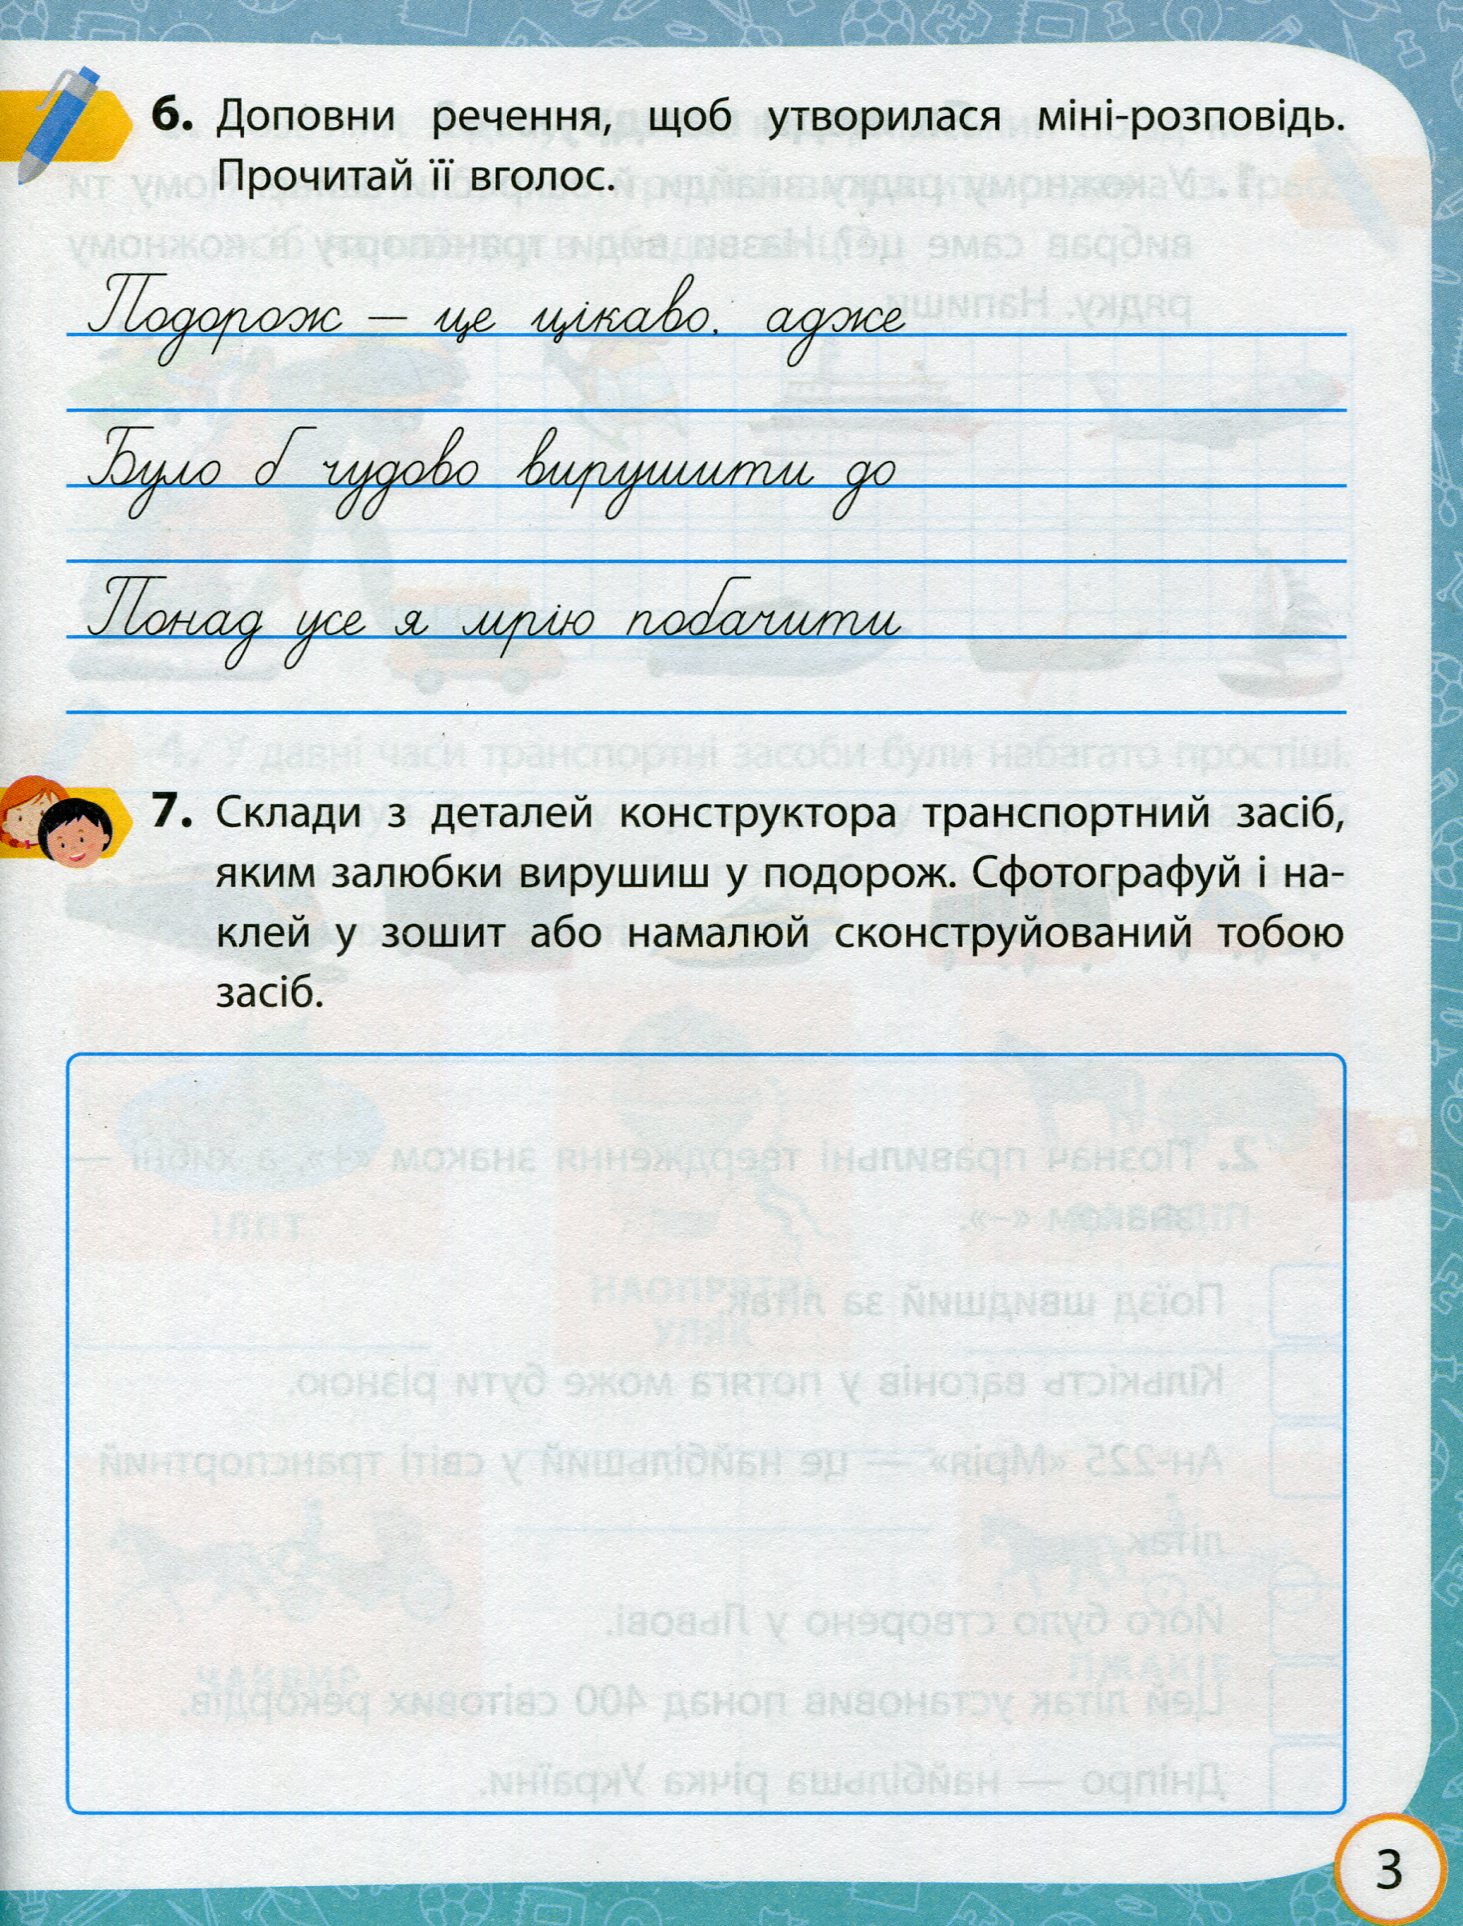 6. Доповни речення, щоб утворилася міні-розповідь.
Прочитай її вголос.
Подорож — це цікаво, адже
Було б чудово вирушити до
Понад усе я мрію побачити
7. Склади з деталей конструктора транспортний засіб,
яким залюбки вирушиш у подорож. Сфотографуй і на-
клей у зошит або намалюй сконструйований тобою
засіб.
3